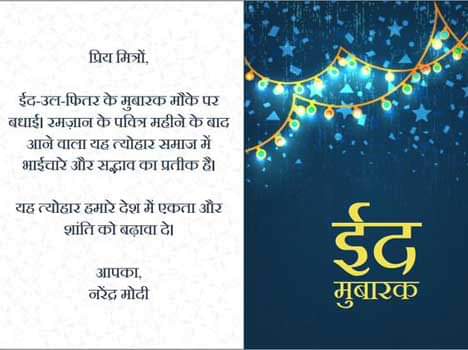 प्रिय मित्रों,
ईद-उल-फितर के मुबारक मौके पर
बधाई। रमज़ान के पवित्र महीने के बाद
आने वाला यह त्योहार समाज में
भाईचारे और सद्भाव का प्रतीक है।
यह त्योहार हमारे देश में एकता और
शांति को बढ़ावा दे।
आपका,
नरेंद्र मोदी
ईद
मुबारक